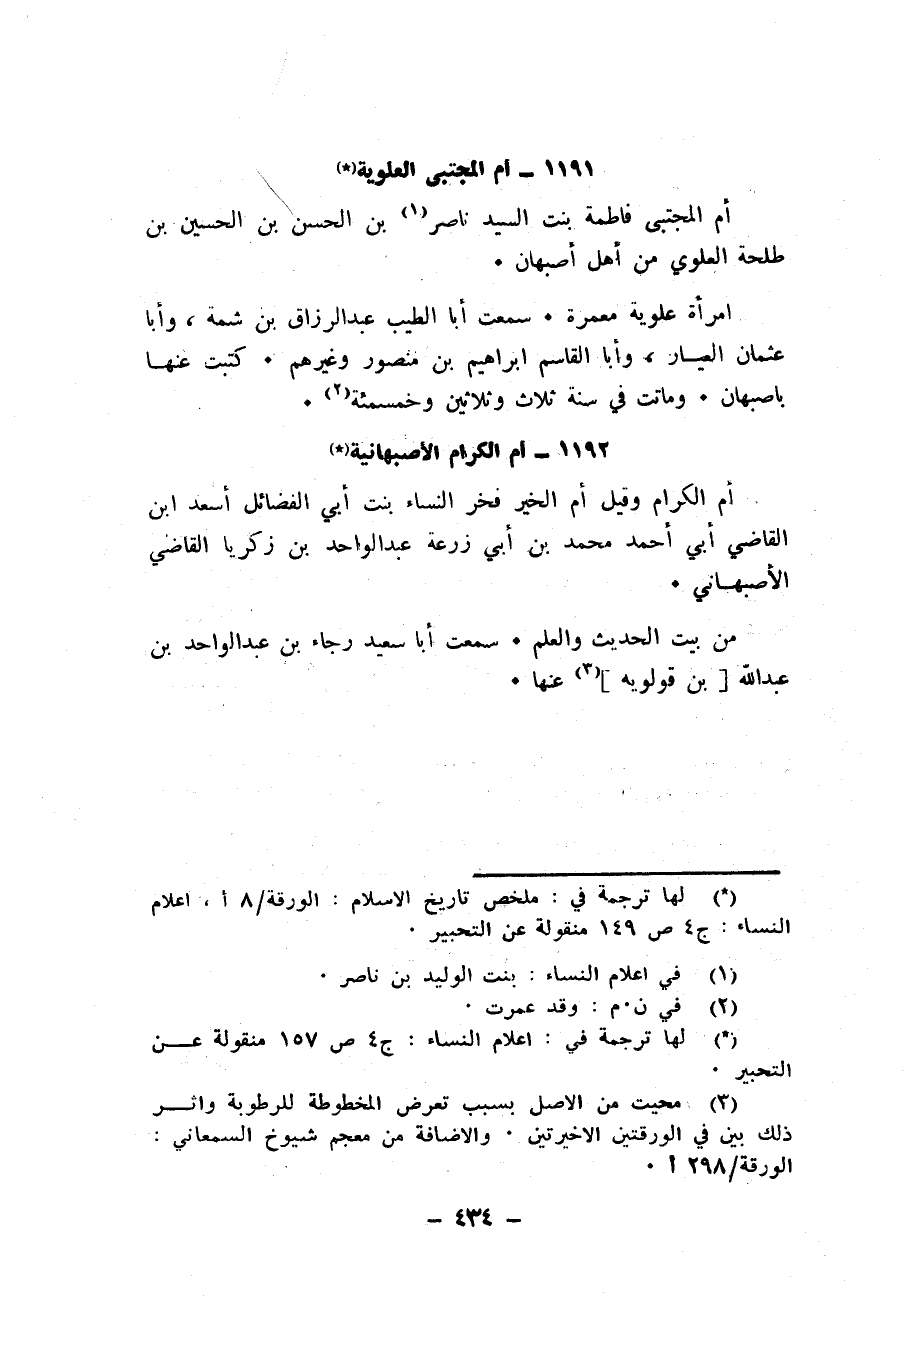 ١١٩١ ــ أم المجتبى العلوية(*)
أم المجتبى فاطمة بنت السيد ناصر(١) بن الحسن بن الحسين بن
طلحة العلوي من أهل أصبهان ٠
امرأة علوية معمرة ٠ سمعت أبا الطيب عبدالرزاق بن شمة ، وأبا
عثمان العيـــار ، وأبا القاسم ابراهيم بن منصور وغيرهم ٠ كتبت عنهـــا
باصبهان ٠ وماتت في سنة ثلاث وثلاثين وخمسمئة(٢) ٠
١١٩٢ ــ أم الكرام الأصبهانية(*)
أم الكرام وقيل أم الخير فخر النساء بنت أبي الفضائل أسعد ابن
القاضي أبي أحمد محمد بن أبي زرعة عبدالواحد بن زكريا القاضي
الأصبهـــاني ٠
من بيت الحديث والعلم ٠ سمعت أبا سعيد رجاء بن عبدالواحد بن
عبدالله [ بن قولويه ](٣) عنها ٠
(*) لها ترجمة في : ملخص تاريخ الاسلام : الورقة/٨ أ ، اعلام
النساء : ج٤ ص ١٤٩ منقولة عن التحبير ٠
(١) في اعلام النساء : بنت الوليد بن ناصر ٠
(٢) في ن٠م : وقد عمرت ٠
(*) لها ترجمة في : اعلام النساء : ج٤ ص ١٥٧ منقولة عـــن
التحبير ٠
(٣) محيت من الاصل بسبب تعرض المخطوطة للرطوبة واثـــر
ذلك بين في الورقتين الاخيرتين ٠ والاضافة من معجم شيوخ السمعاني :
الورقة/٢٩٨ أ ٠
ــ ٤٣٤ ــ